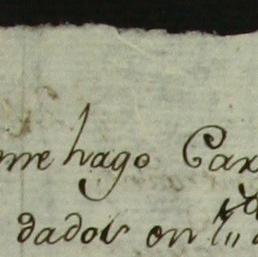 me hago Car
dados en